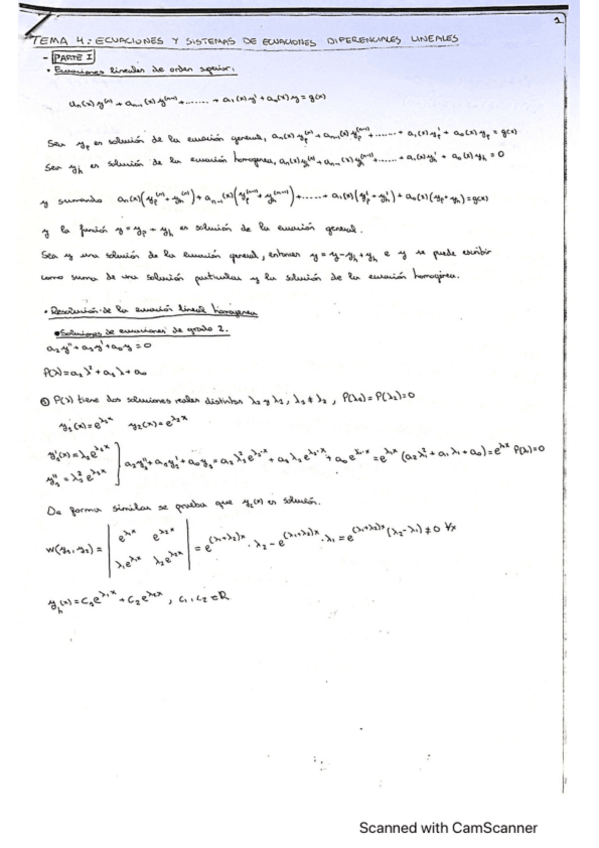 1
TEMA 4: ECUACIONES Y SISTEMAS DE ECUACIONES DIFERENCIALES LINEALES
- PARTE I
• Ecuaciones lineales de orden superior:
aₙ(x) y⁽ⁿ⁾ + aₙ₋₁(x) y⁽ⁿ⁻¹⁾ + ....... + a₁(x) y' + a₀(x) y = g(x)
Sea yₚ es solución de la ecuación general, aₙ(x) yₚ⁽ⁿ⁾ + aₙ₋₁(x) yₚ⁽ⁿ⁻¹⁾ + ....... + a₁(x) yₚ' + a₀(x) yₚ = g(x)
Sea yₕ es solución de la ecuación homogenea, aₙ(x) yₕ⁽ⁿ⁾ + aₙ₋₁(x) yₕ⁽ⁿ⁻¹⁾ + ....... + a₁(x) yₕ' + a₀(x) yₕ = 0
y sumando aₙ(x)(yₚ⁽ⁿ⁾ + yₕ⁽ⁿ⁾) + aₙ₋₁(x)(yₚ⁽ⁿ⁻¹⁾ + yₕ⁽ⁿ⁻¹⁾) + ...... + a₁(x)(yₚ' + yₕ') + a₀(x)(yₚ + yₕ) = g(x)
y la función y = yₚ + yₕ es solución de la ecuación general.
Sea y una solución de la ecuación general, entonces y = y - yₕ + yₕ e y se puede escribir
como suma de una solución particular y la solución de la ecuación homogénea.
• Resolución de la ecuación lineal homogénea
• Soluciones de ecuaciones de grado 2.
a₂y'' + a₁y' + a₀y = 0
P(λ) = a₂λ² + a₁λ + a₀
① P(λ) tiene dos soluciones reales distintas λ₁ y λ₂, λ₁ ≠ λ₂, P(λ₁) = P(λ₂) = 0
y₁(x) = e^{λ₁x} y₂(x) = e^{λ₂x}
y₁'(x) = λ₁e^{λ₁x}
y₁'' = λ₁²e^{λ₁x} ] a₂y₁'' + a₁y₁' + a₀y₁ = a₂λ₁²e^{λ₁x} + a₁λ₁e^{λ₁x} + a₀e^{λ₁x} = e^{λ₁x}(a₂λ₁² + a₁λ₁ + a₀) = e^{λ₁x} P(λ₁) = 0
De forma similar se prueba que y₂(x) es solución.
W(y₁, y₂) = | e^{λ₁x} e^{λ₂x} | = e^{(λ₁+λ₂)x} · λ₂ - e^{(λ₁+λ₂)x} · λ₁ = e^{(λ₁+λ₂)x}(λ₂ - λ₁) ≠ 0 ∀x
| λ₁e^{λ₁x} λ₂e^{λ₂x} |
yₕ(x) = C₁e^{λ₁x} + C₂e^{λ₂x}, C₁, C₂ ∈ ℝ
Scanned with CamScanner